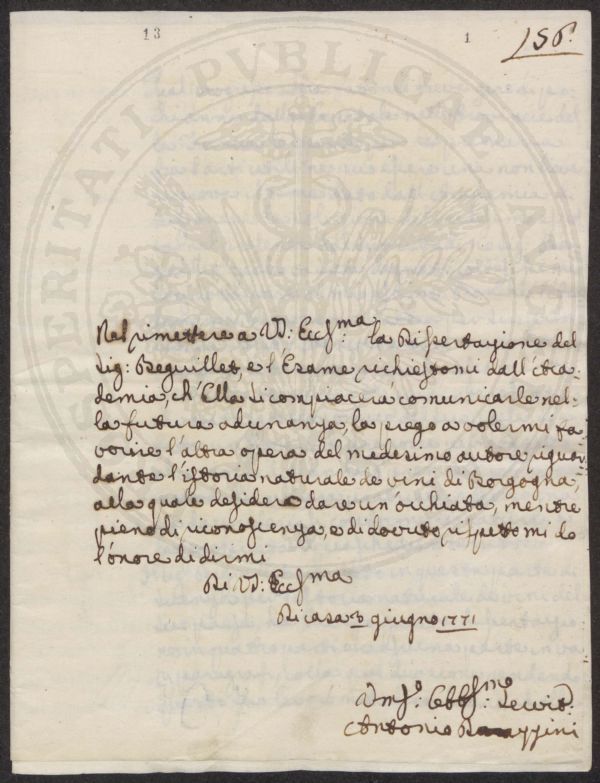 13
1
156.
Nel rimettere a VS: Eccſma: la Diſsertazione del
Sig: Beguillet, e l'Esame richieſtomi dall'Acca-
demia, ch'Ella si compiacerà comunicarle nel-
la futura adunanza, la prego a volermi fa-
vorire l'altra opera del medesimo autore riguar-
dante l'iſtoria naturale de vini di Borgogna,
alla quale desidero dare un'occhiata, mentre
pieno di riconoſcenza, e di dovuto riſpetto mi do
l'onore di dirmi
Di VS: Eccſma
Di casa 3 giugno 1771
Obbſmo Servid:
Antonio
PROSPERITATI PVBLICAE AVGENDAE